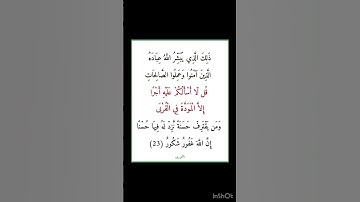 ذَلِكَ الَّذِي يُبَشِّرُ اللَّهُ عِبَادَهُ
الَّذِينَ آمَنُوا وَعَمِلُوا الصَّالِحَاتِ
قُل لَّا أَسْأَلُكُمْ عَلَيْهِ أَجْرًا
إِلَّا الْمَوَدَّةَ فِي الْقُرْبَى
وَمَن يَقْتَرِفْ حَسَنَةً نَّزِدْ لَهُ فِيهَا حُسْنًا
إِنَّ اللَّهَ غَفُورٌ شَكُورٌ (23)
الشورى
InShOt